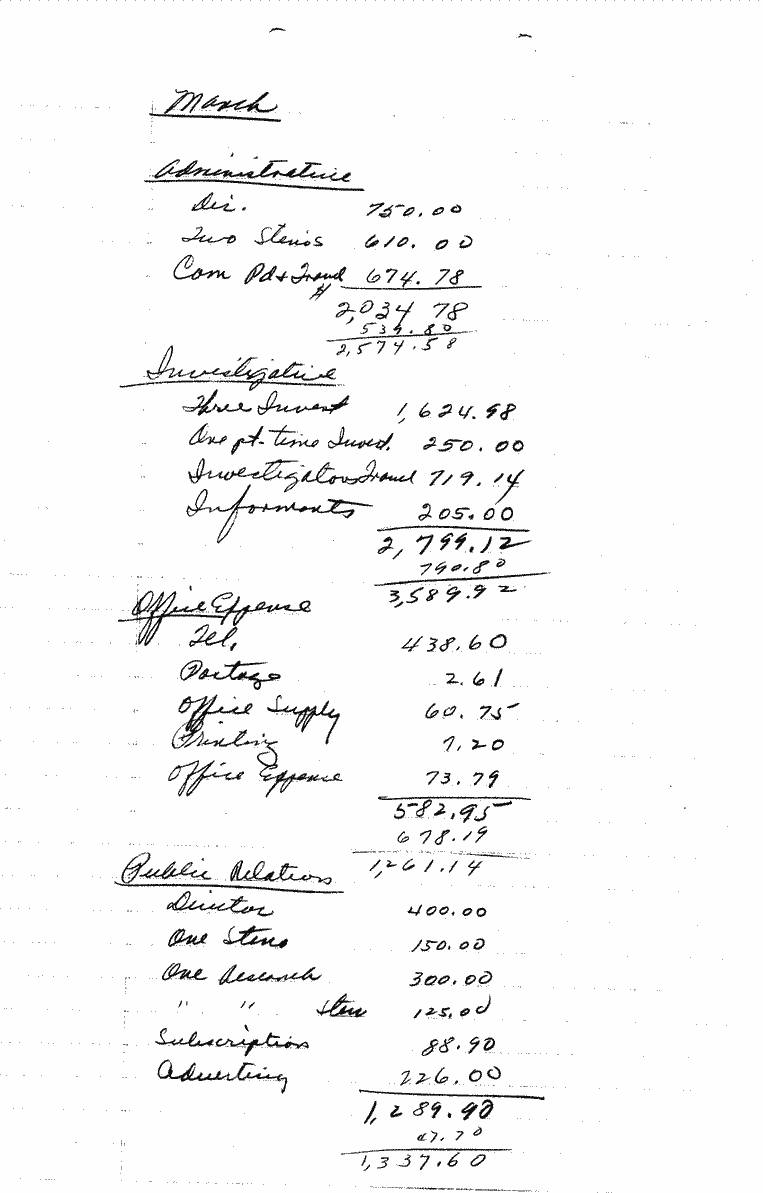 March
Administrative
Dir. 750.00
Two Stenos 610.00
Com Pd & Travel 674.78
2,034 78
539.80
2,574.58
Investigative
Three Invest 1,624.98
One pt-time Invest. 250.00
Investigators Travel 719.14
Informants 205.00
2,799.12
790.80
3,589.92
Office Expense
Tel. 438.60
Postage 2.61
Office Supply 60.75
Printing 7.20
Office Expense 73.79
582.95
678.19
1,261.14
Public Relations
Director 400.00
One Steno 150.00
One Research 300.00
" " Steno 125.00
Subscription 88.90
Adverting 226.00
1,289.90
47.70
1,337.60